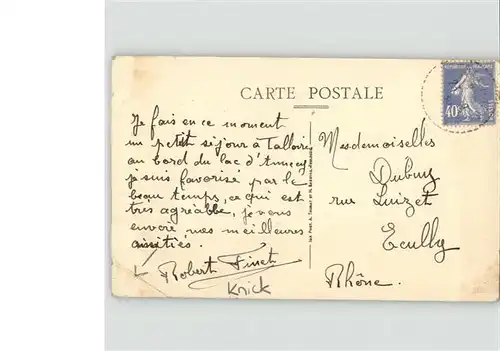 CARTE POSTALE
Je fais en ce moment
un petit séjour à Talloires
au bord du lac d'Annecy
je suis favorisé par le
beau temps, ce qui est
très agréable, je vous
envoie mes meilleures
amitiés.
Robert Finet
Knick
Mesdemoiselles
Dubuy
rue Luizet
Ecully
Rhône.
40c